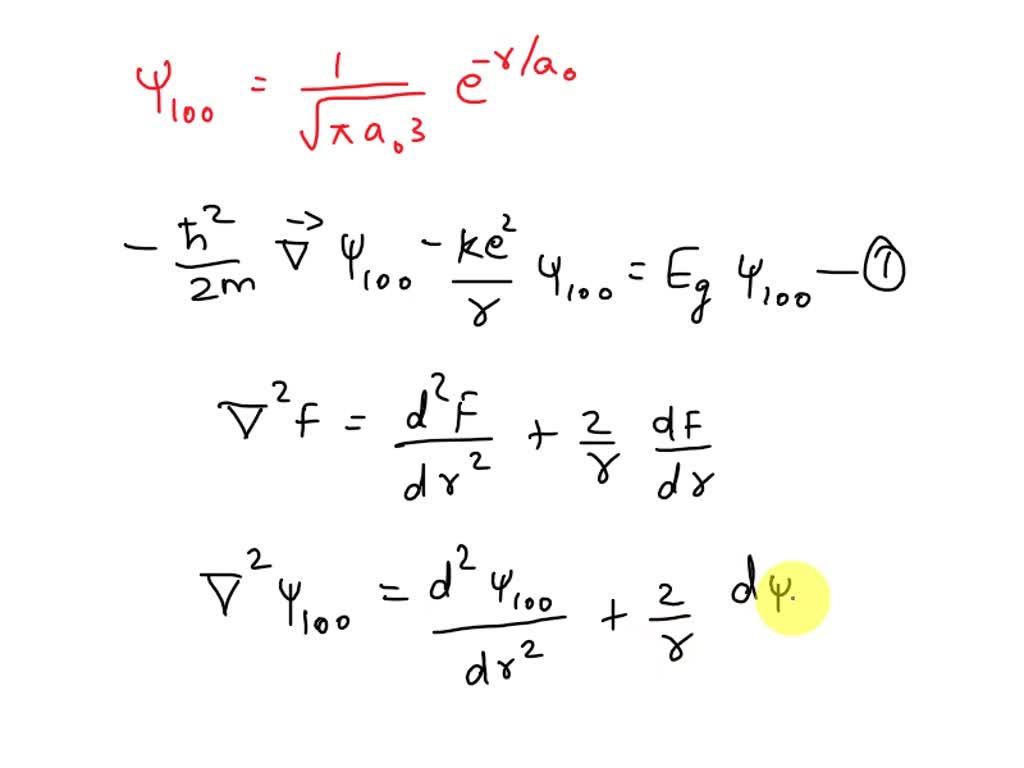 ψ₁₀₀ = 1/√(πa₀3) e^(-r/a₀)
- ħ²/2m ∇⃗ ψ₁₀₀ - ke²/r ψ₁₀₀ = E_g ψ₁₀₀ — ①
∇²F = d²F/dr² + 2/r dF/dr
∇²ψ₁₀₀ = d²ψ₁₀₀/dr² + 2/r dψ